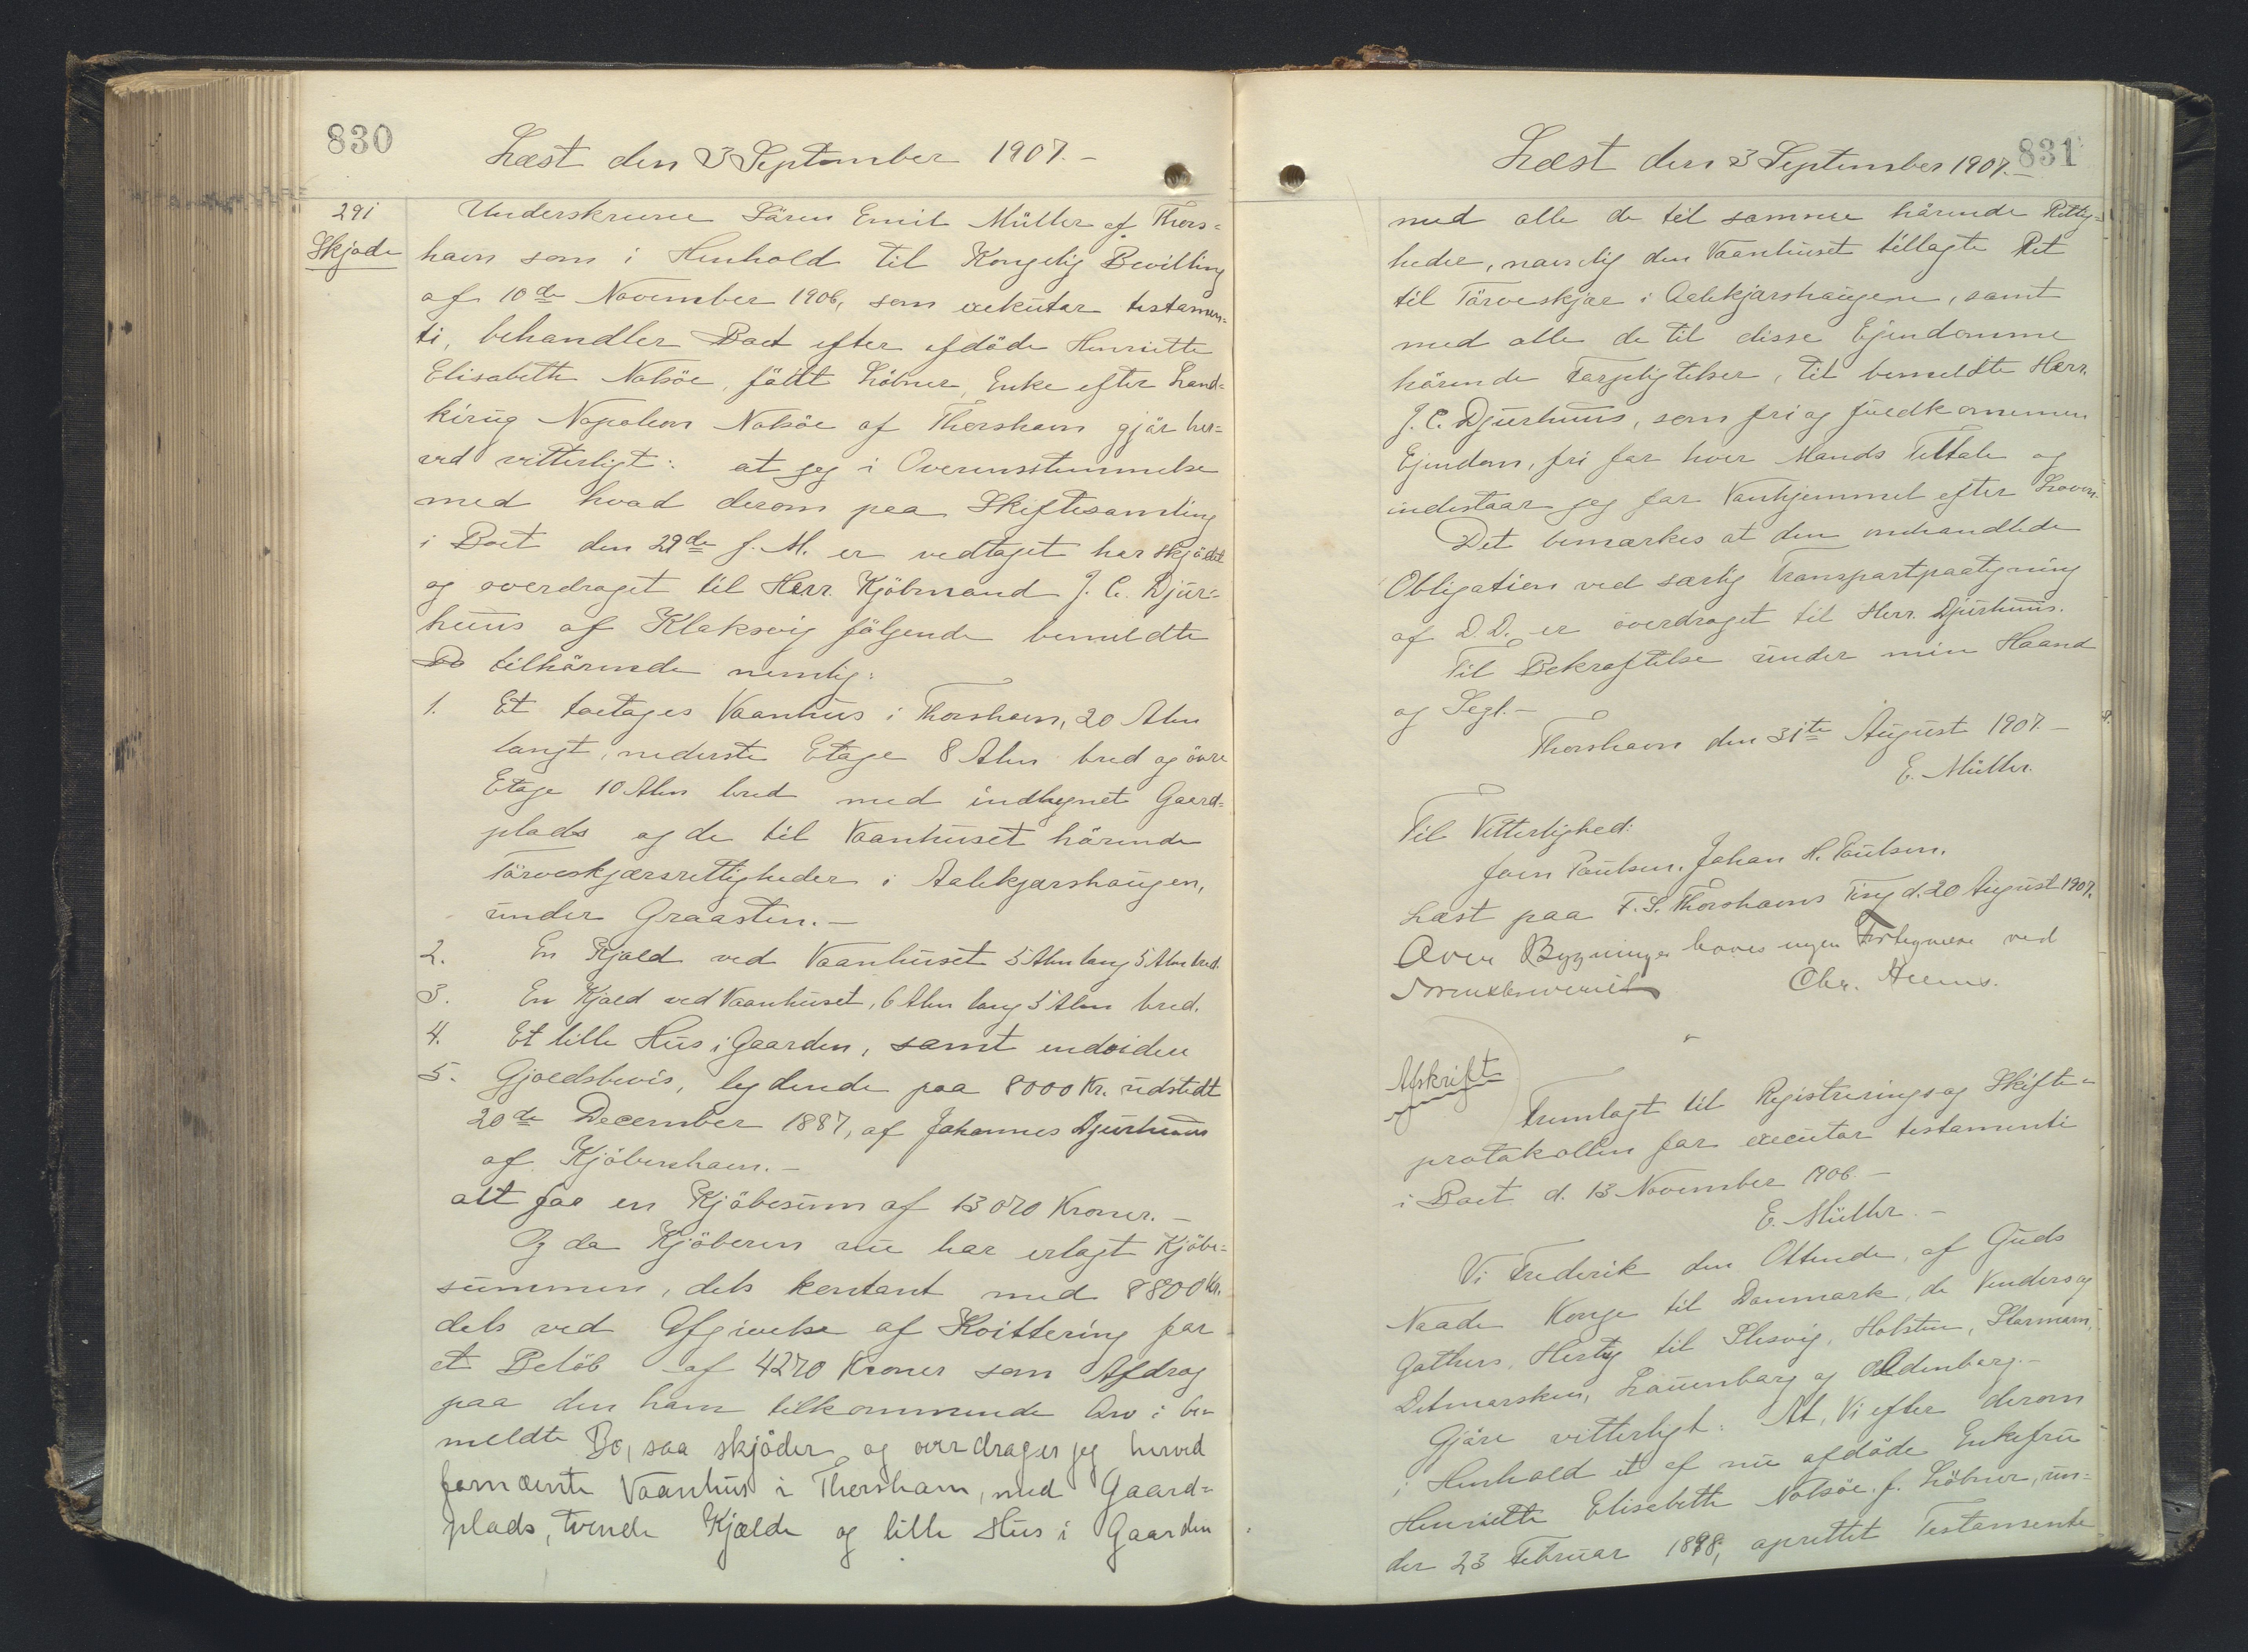 830
Læst den 3 September 1907.-
291
Skjøde
Underskrevne Sören Emil Müller af Thors=
havn som i Henhold til Kongelig Bevilling
af 10de November 1906, som exekutor testamen=
ti, behandler Boet efter afdöde Henriette
Elisabeth Nolsöe, född Löbner, Enke efter Land=
kirug Napoleon Nolsöe af Thorshavn gjör her=
ved vitterligt: at jeg i Overensstemmelse
med hvad derom paa Skiftesamling
i Boet den 29de f. M. er vedtaget har skjödet
og overdraget til Herr. Kjöbmand J. C. Djur=
huus af Klaksvig fölgende bemeldte
Bo tilhörende nemlig:
1. Et toetages Vaanhus i Thorshavn, 20 Alen
langt, nederste Etage 8 Alen bred og övre
Etage 10 Alen bred med indhegnet Gaard=
plads og de til Vaanhuset hörende
Törveskjærsrettigheder i Aalekjærshaugen,
under Graasten.-
2. En Kjæld ved Vaanhuset 5 Alen lang 5 Alen bred.
3. En Kjæld ved Vaanhuset, 6 Alen lang 5 Alen bred.
4. Et lille Hus i Gaarden, samt endviden
5. Gjældsbevis, lydende paa 8000 Kr. udstedt
20de December 1887, af Johannes Djurhuus
af Kjöbenhavn.-
alt for en Kjöbesum af 13070 Kroner.-
Og da Kjöberen nu har erlagt Kjöbe=
summen, dels kontant med 8800 Kr.
dels ved Afgivelse af Kvittering for
et Belöb af 4270 Kroner som Afdrag
paa den ham tilkommende Arv i be-
meldte Bo, saa skjöder og overdrager jeg herved
fornævnte Vaanhus i Thorshavn, med Gaard=
plads, tvende Kjælde og lille Hus i Gaarden
831
Læst den 3 September 1907.-
med alle de til samme hörende Rettig=
heder, navnlig den Vaanhuset tillagte Ret
til Törveskjær i Aalekjærshaugene, samt
med alle de til disse Ejendomme
hörende Forpligtelser, til bemeldte Herr.
J. C. Djurhuus, som fri og fuldkommen
Ejendom, fri for hver Mands Tiltale og
indestaar jeg for Vanhjemmel efter Loven.
Det bemærkes at den omhandlede
Obligation ved særlig Transportpaategning
af D. D. er overdraget til Herr. Djurhuus.
Til Bekræftelse under min Haand
og Segl.-
Thorshavn den 31te August 1907.-
E. Müller.
Til Vitterlighed:
Joen Poulsen. Johan H. Poulsen.
Læst paa F. S. Thorshavns Ting d. 20 August 1907.
Over Bygninger haves ingen Fortegnelse ved
Sorenskriveriet
Afskrift
Fremlagt til Registrerings og Skifte=
protokollen for executor testamenti
i Boet d. 13 November 1906.-
E. Müller.-
Vi Frederik den Ottende, af Guds
Naade Konge til Danmark, de Venders og
Gothers, Hertug til Slesvig, Holsten, Stormarn,
Ditmarsken, Lauenborg og Oldenborg.-
Gjöre vitterligt: At, Vi efter derom
i Henhold et af nu afdöde Enkefru
Henriette Elisebeth Nolsöe f. Löbner, un=
der 23 Februar 1898, oprettet Testamente